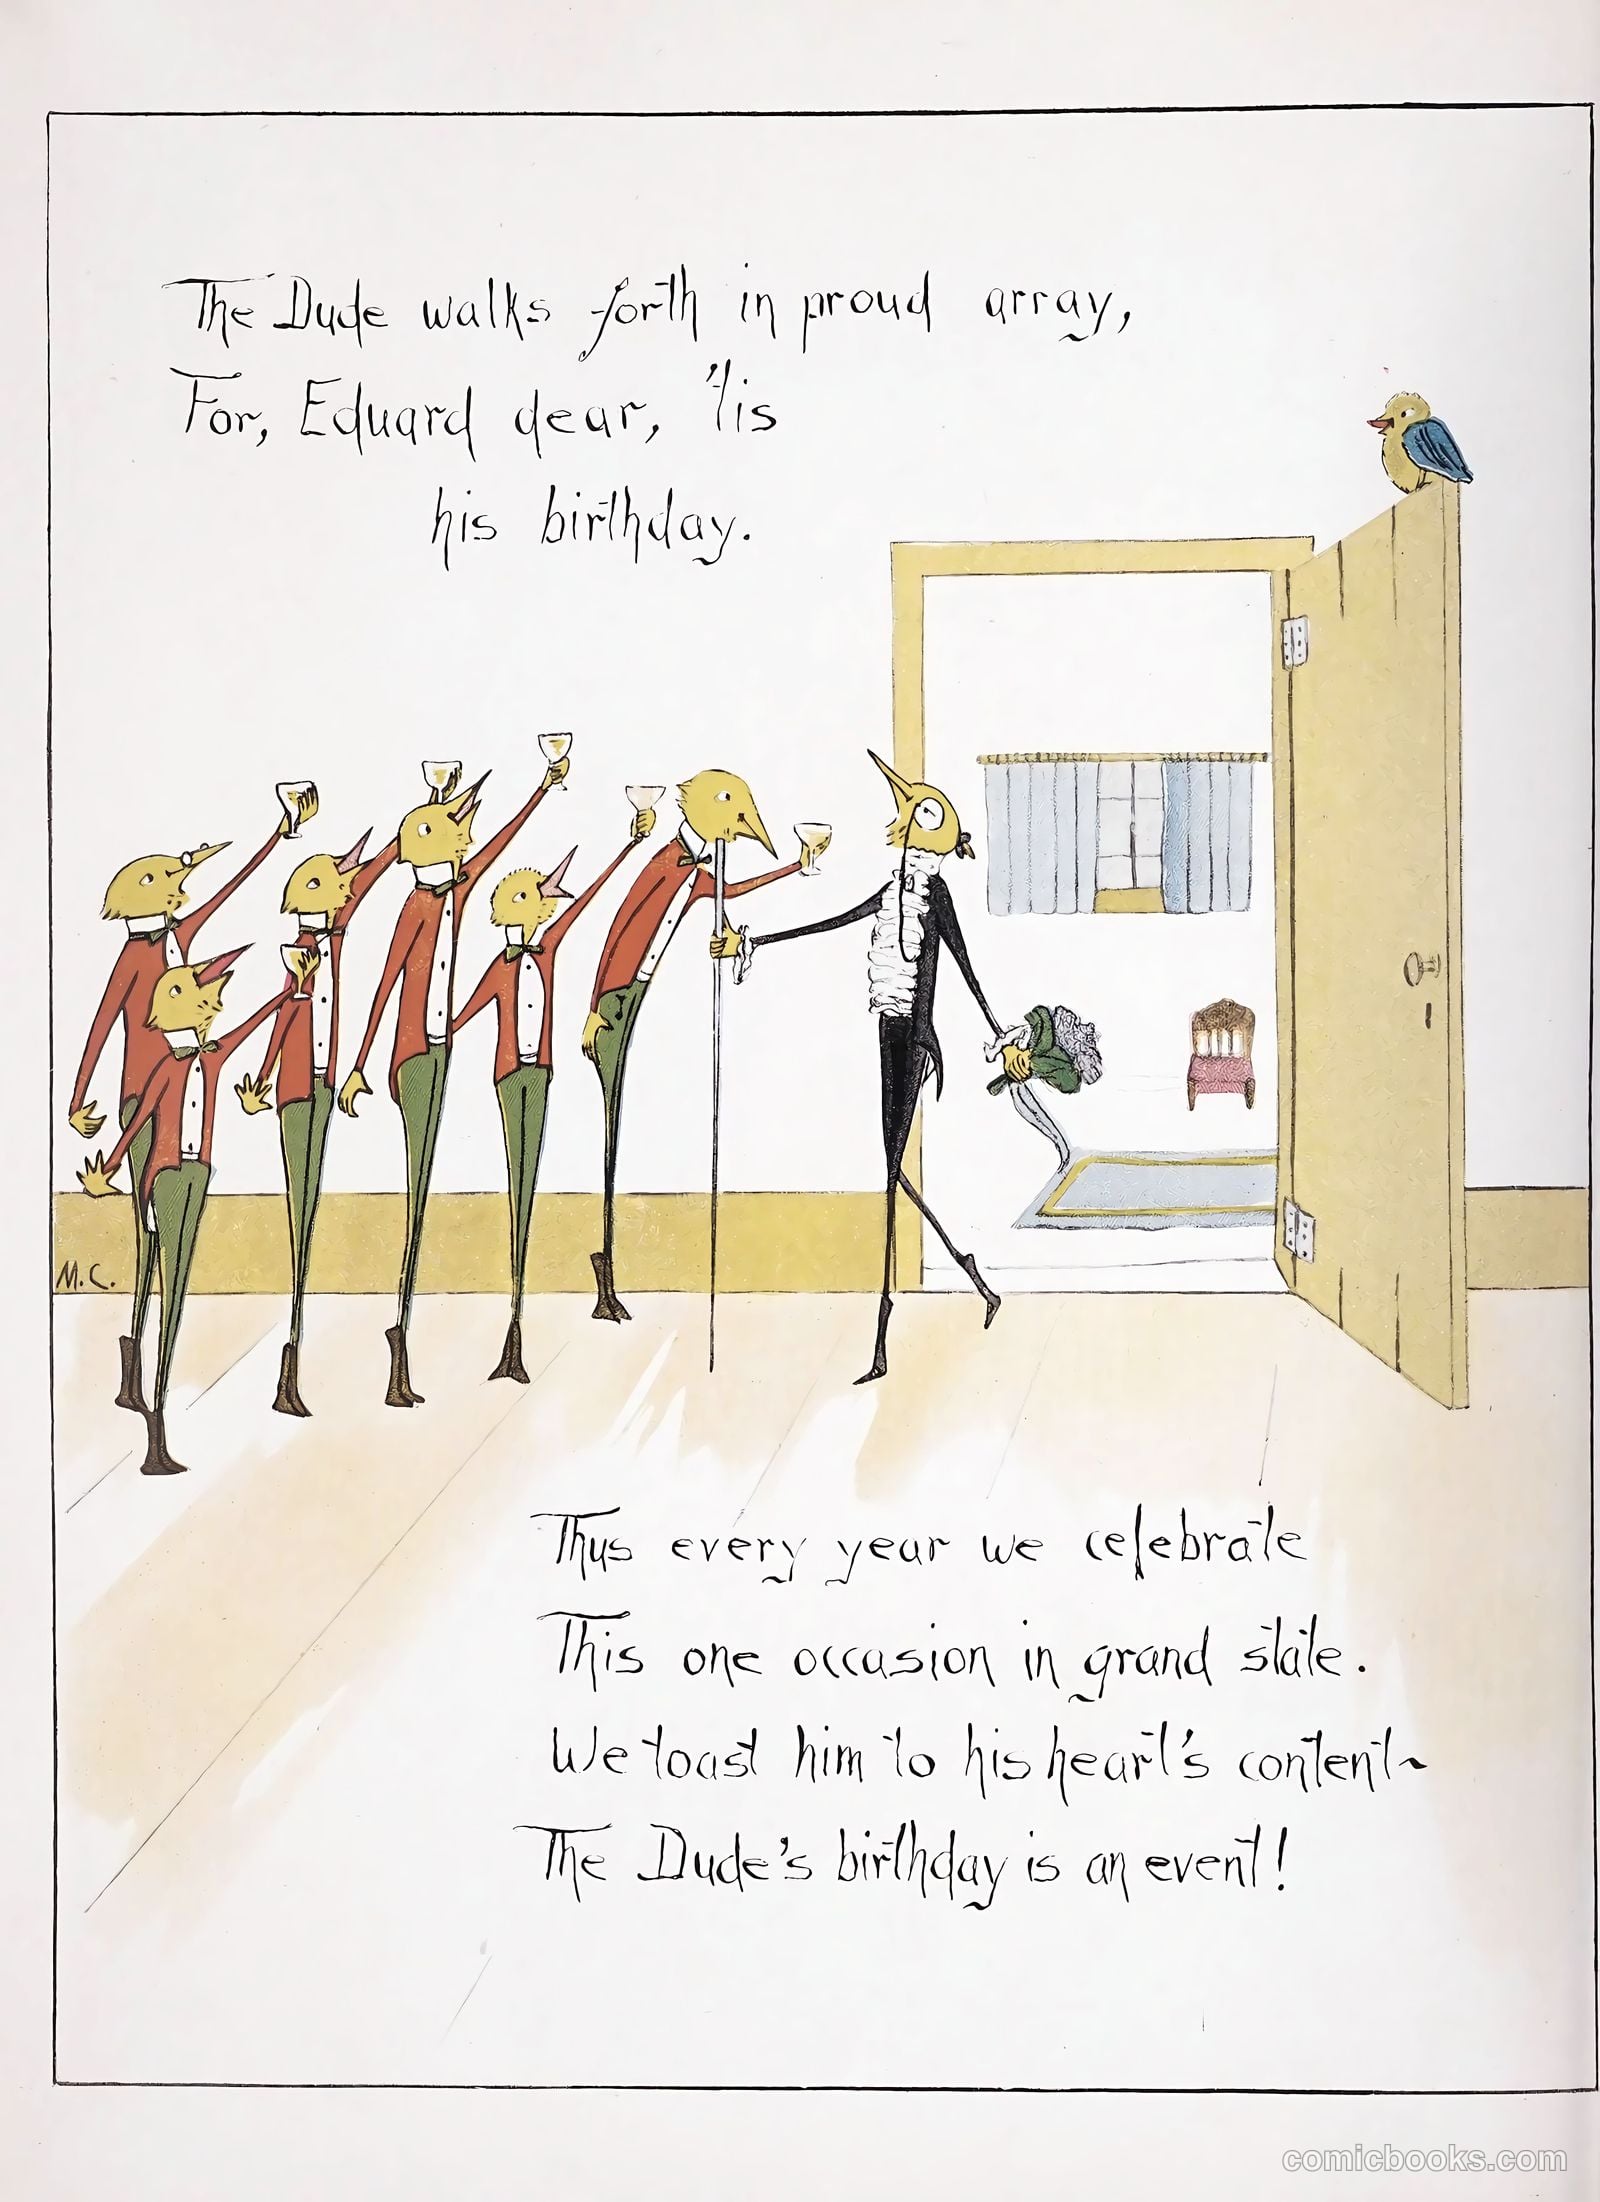 The Dude walks forth in proud array,
For, Eduard dear, 'tis
his birthday.
M.C.
Thus every year we celebrate
This one occasion in grand state.
We toast him to his heart's content~
The Dude's birthday is an event!
comicbooks.com